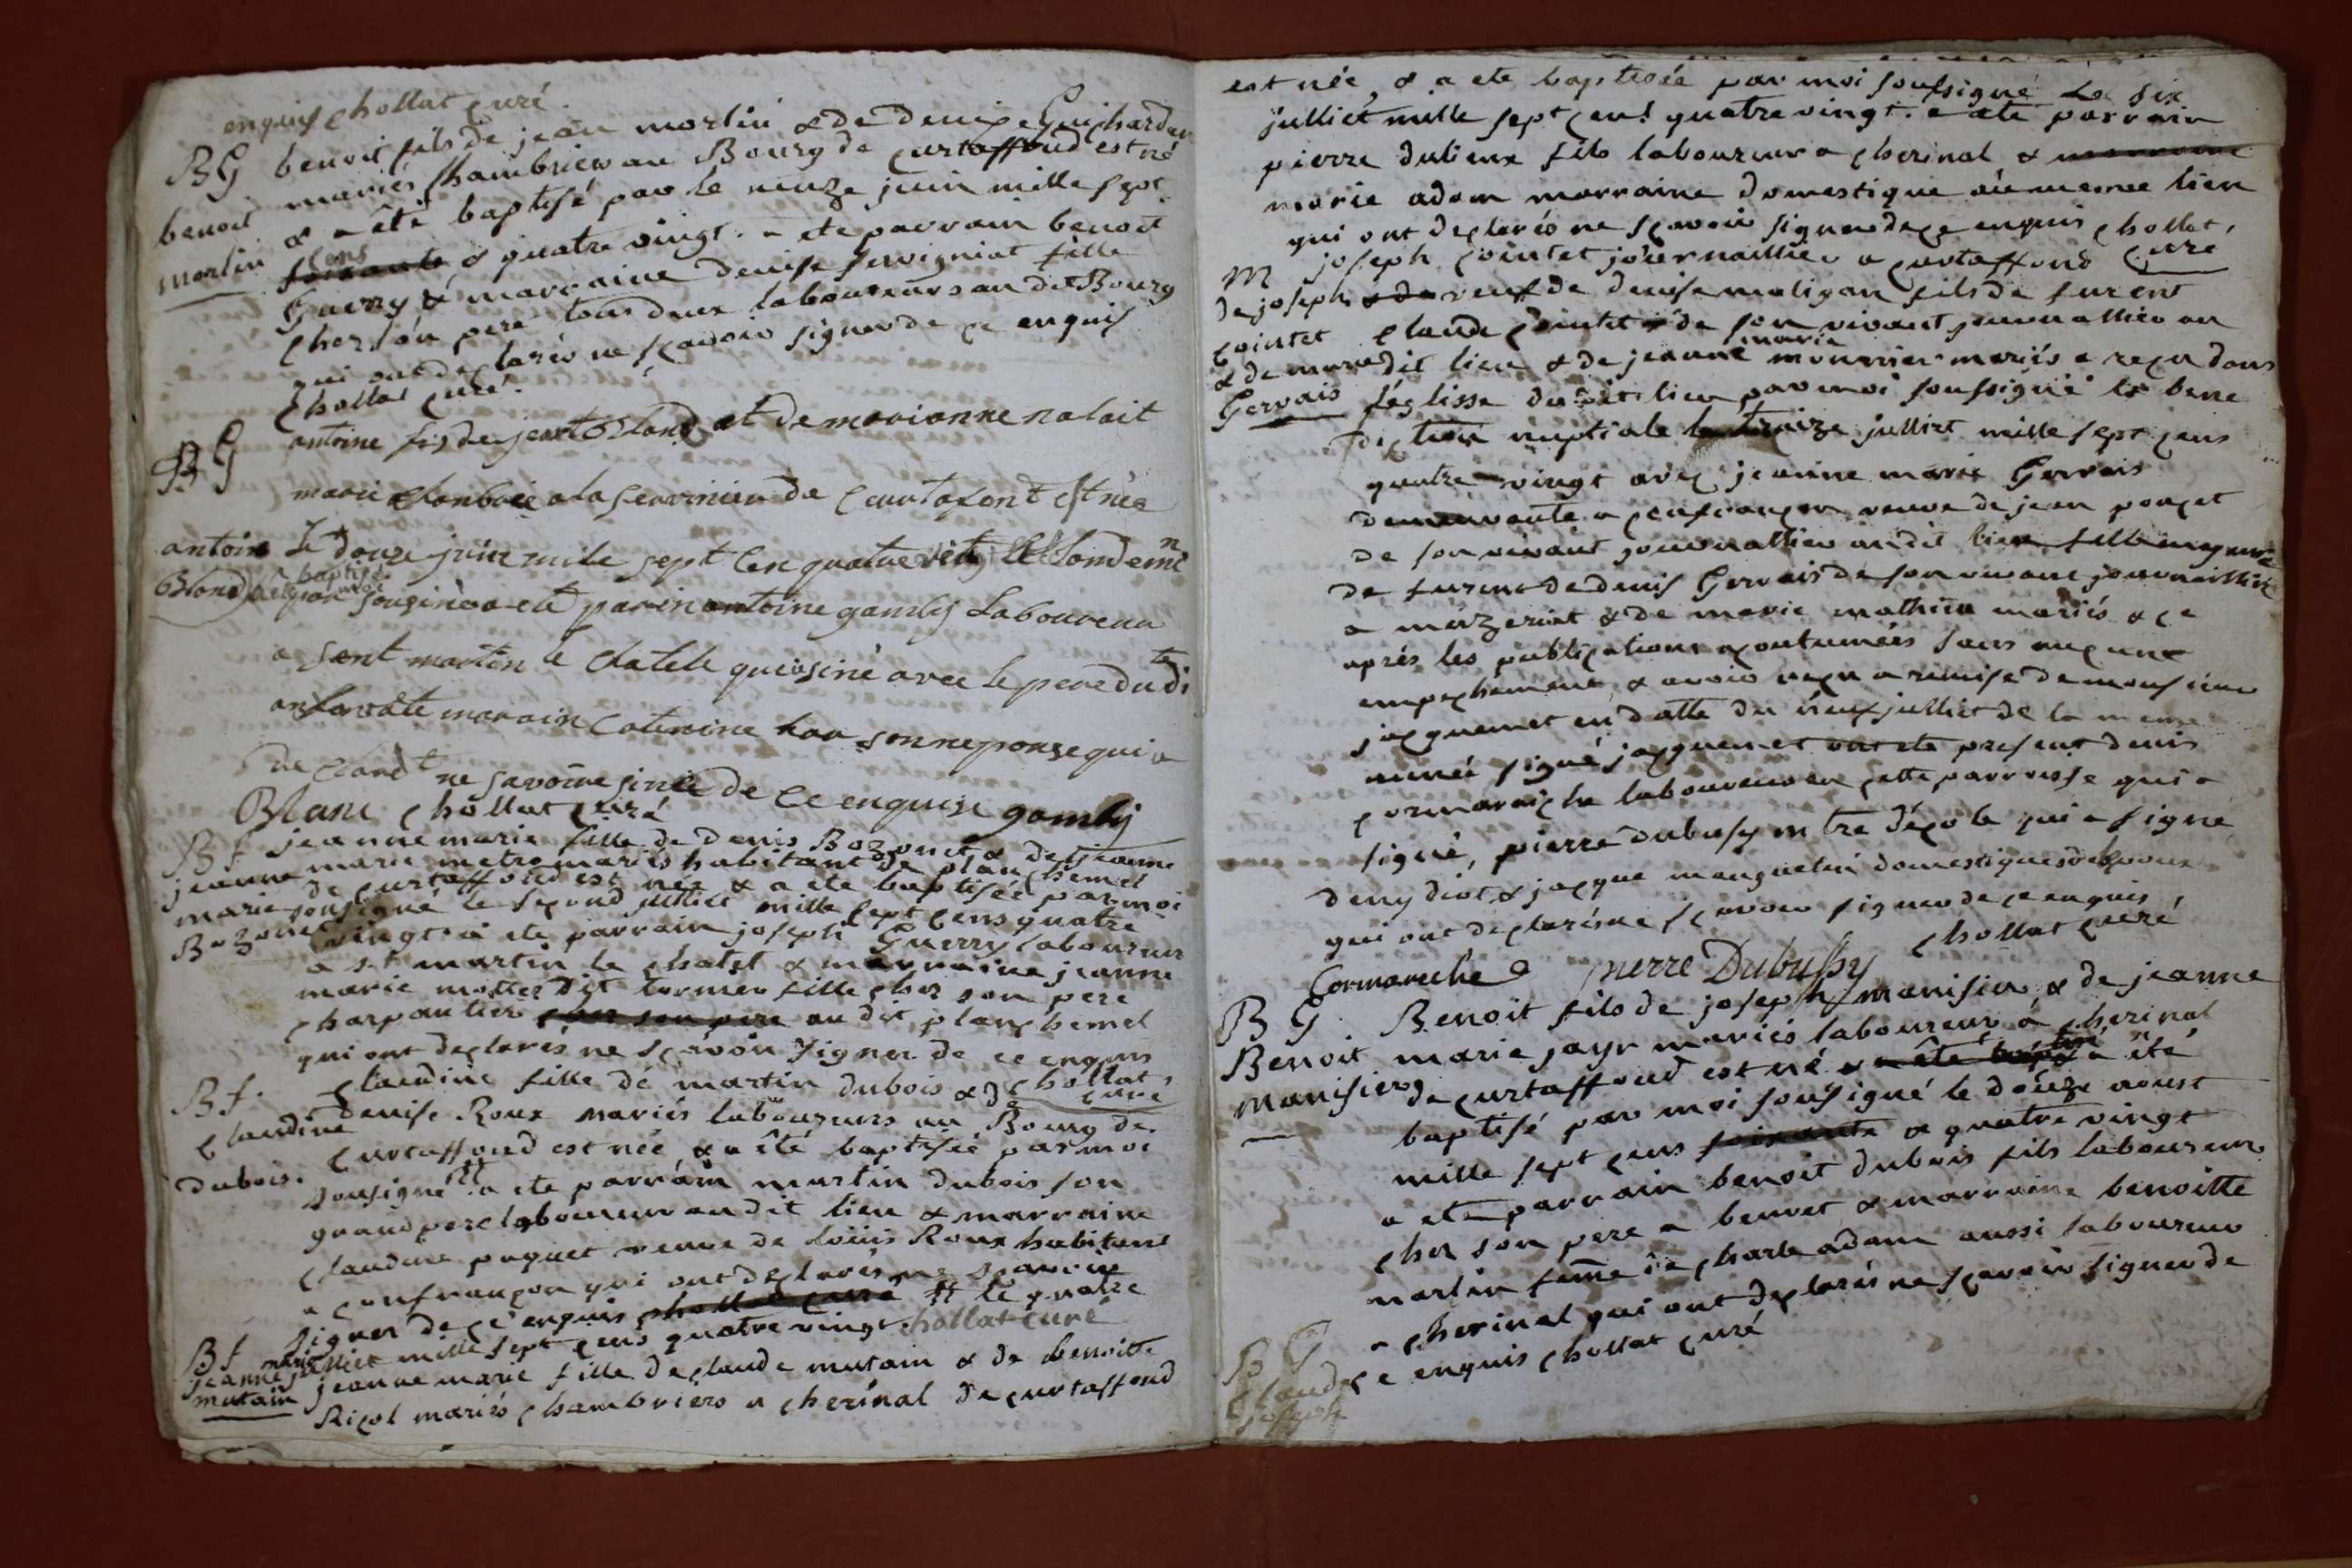 enquis chollat curé.
BG benoit fils de jean morlin & de denise Guichardon
mariés chambrier au Bourg de curtaffoud est né
benoit & a été baptisé par le neuze juin mille sept
morlin cens soixante & quatre vingt. a ete parrain benoit
Guerry & marraine denise servigniat fille
chez son pere tous deux laboureurs au dit Bourg
qui ont declarés ne scavoir signer de ce enquis
chollat curé.
BG antoine fis de jent Bland et de marianne nalait
marie chanbrie a la servinieu de curtafont est née
antoine Le douze juin mile sept cen quatre vint le londemn
Bland a été baptisé par moi sousiné a eté parin antoine gamby Laboureur
a sent martin le chatele qui a siné avec le pere du dit
anfant ete marain caterine
ne savoire sine de ce enquise gambij
Blanc chollat curé
BF jeanne marie fille de denis Bozonet & de jeanne
jeanne marie metro mariés habitant de planchemel
marie de curtaffoud est née & a ete baptisée par moi
Bozonet sousigné le second julliet mille sept cens quatre
vingt. a ete parrain joseph Guerry laboureur
a st martin le chatel & marraine jeanne
marie mottet dit tormier fille chez son pere
charpantier chez son pere au dit planchemel
qui ont declarés ne scavoir signer de ce enquis
chollat curé
BF. claudine fille de martin dubois & de
claudine denise Roux mariés laboureurs au Bourg de
curtaffoud est née & a été baptisée par moi
dubois. sousigné # a ete parrain martin dubois son
grand pere laboureur au dit lieu & marraine
claudine puquet veuve de louis Roux habitant
a confrançon qui ont declarés ne scavoir
signer de ce enquis chollat curé # le quatre
julliet mille sept cens quatre vingt. chollat curé
BF jeanne marie mutain jeanne marie fille de claude mutain & de benoitte
Rigol mariés chambriers a cherinal de curtaffoud
est née, & a ete baptisée par moi sousigné Le six
julliet mille sept cens quatre vingt. a ete parrain
pierre dulieux fils laboureur a cherinal & marraine
marie adam marraine domestique au meme lieu
qui ont declarés ne scavoir signer de ce enquis chollat
curé
M joseph cointet journallier a curtaffond
de joseph & de veuf de denise maligon fils de furent
cointet claude cointet de son vivant journallier au
& de marie dit lieu & de jeanne marie mounier mariés a reçu dans
Gervais l'eglisse du dit lieu par moi sousigné la bene
diction nuptiale le treize julliet mille sept cens
quatre vingt avec jeanne marie Gervais
demeurante a confrançon veuve de jean ponget
de son vivant journallier au dit lieu fille majeure
de furent de denis Gervais de son vivant journallier
a mézeriat & de marie mathieu mariés & ce
aprés les publications acoutumées sans aucune
empechement, & avoir reçu a remise de monsieur
jacquemet en datte du neuf julliet de la meme
année signé jacquemet ont ete present denis
cormareiche laboureur en cette parroisse qui a
signé, pierre dubusy mtre d'ecole qui a signé
deny diot & jacque manguelin domestiques
qui ont declarés ne scavoir signer de ce enquis
chollat curé
Cormareche pierre Dubussy
BG Benoit fils de joseph manisier & de jeanne
Benoit marie jayr mariés laboureurs a cherinal
manisier de curtaffoud est né & a été baptisé a été
baptisé par moi sousigné le douze aoust
mille sept cens soixante & quatre vingt
a ete parrain benoit dubois fils laboureur
chez son pere a benvet & marraine benoitte
morlin feme de charle adam aussi laboureur
a cherinal qui ont declarés ne scavoir signer de
ce enquis chollat curé
BG
claude
joseph